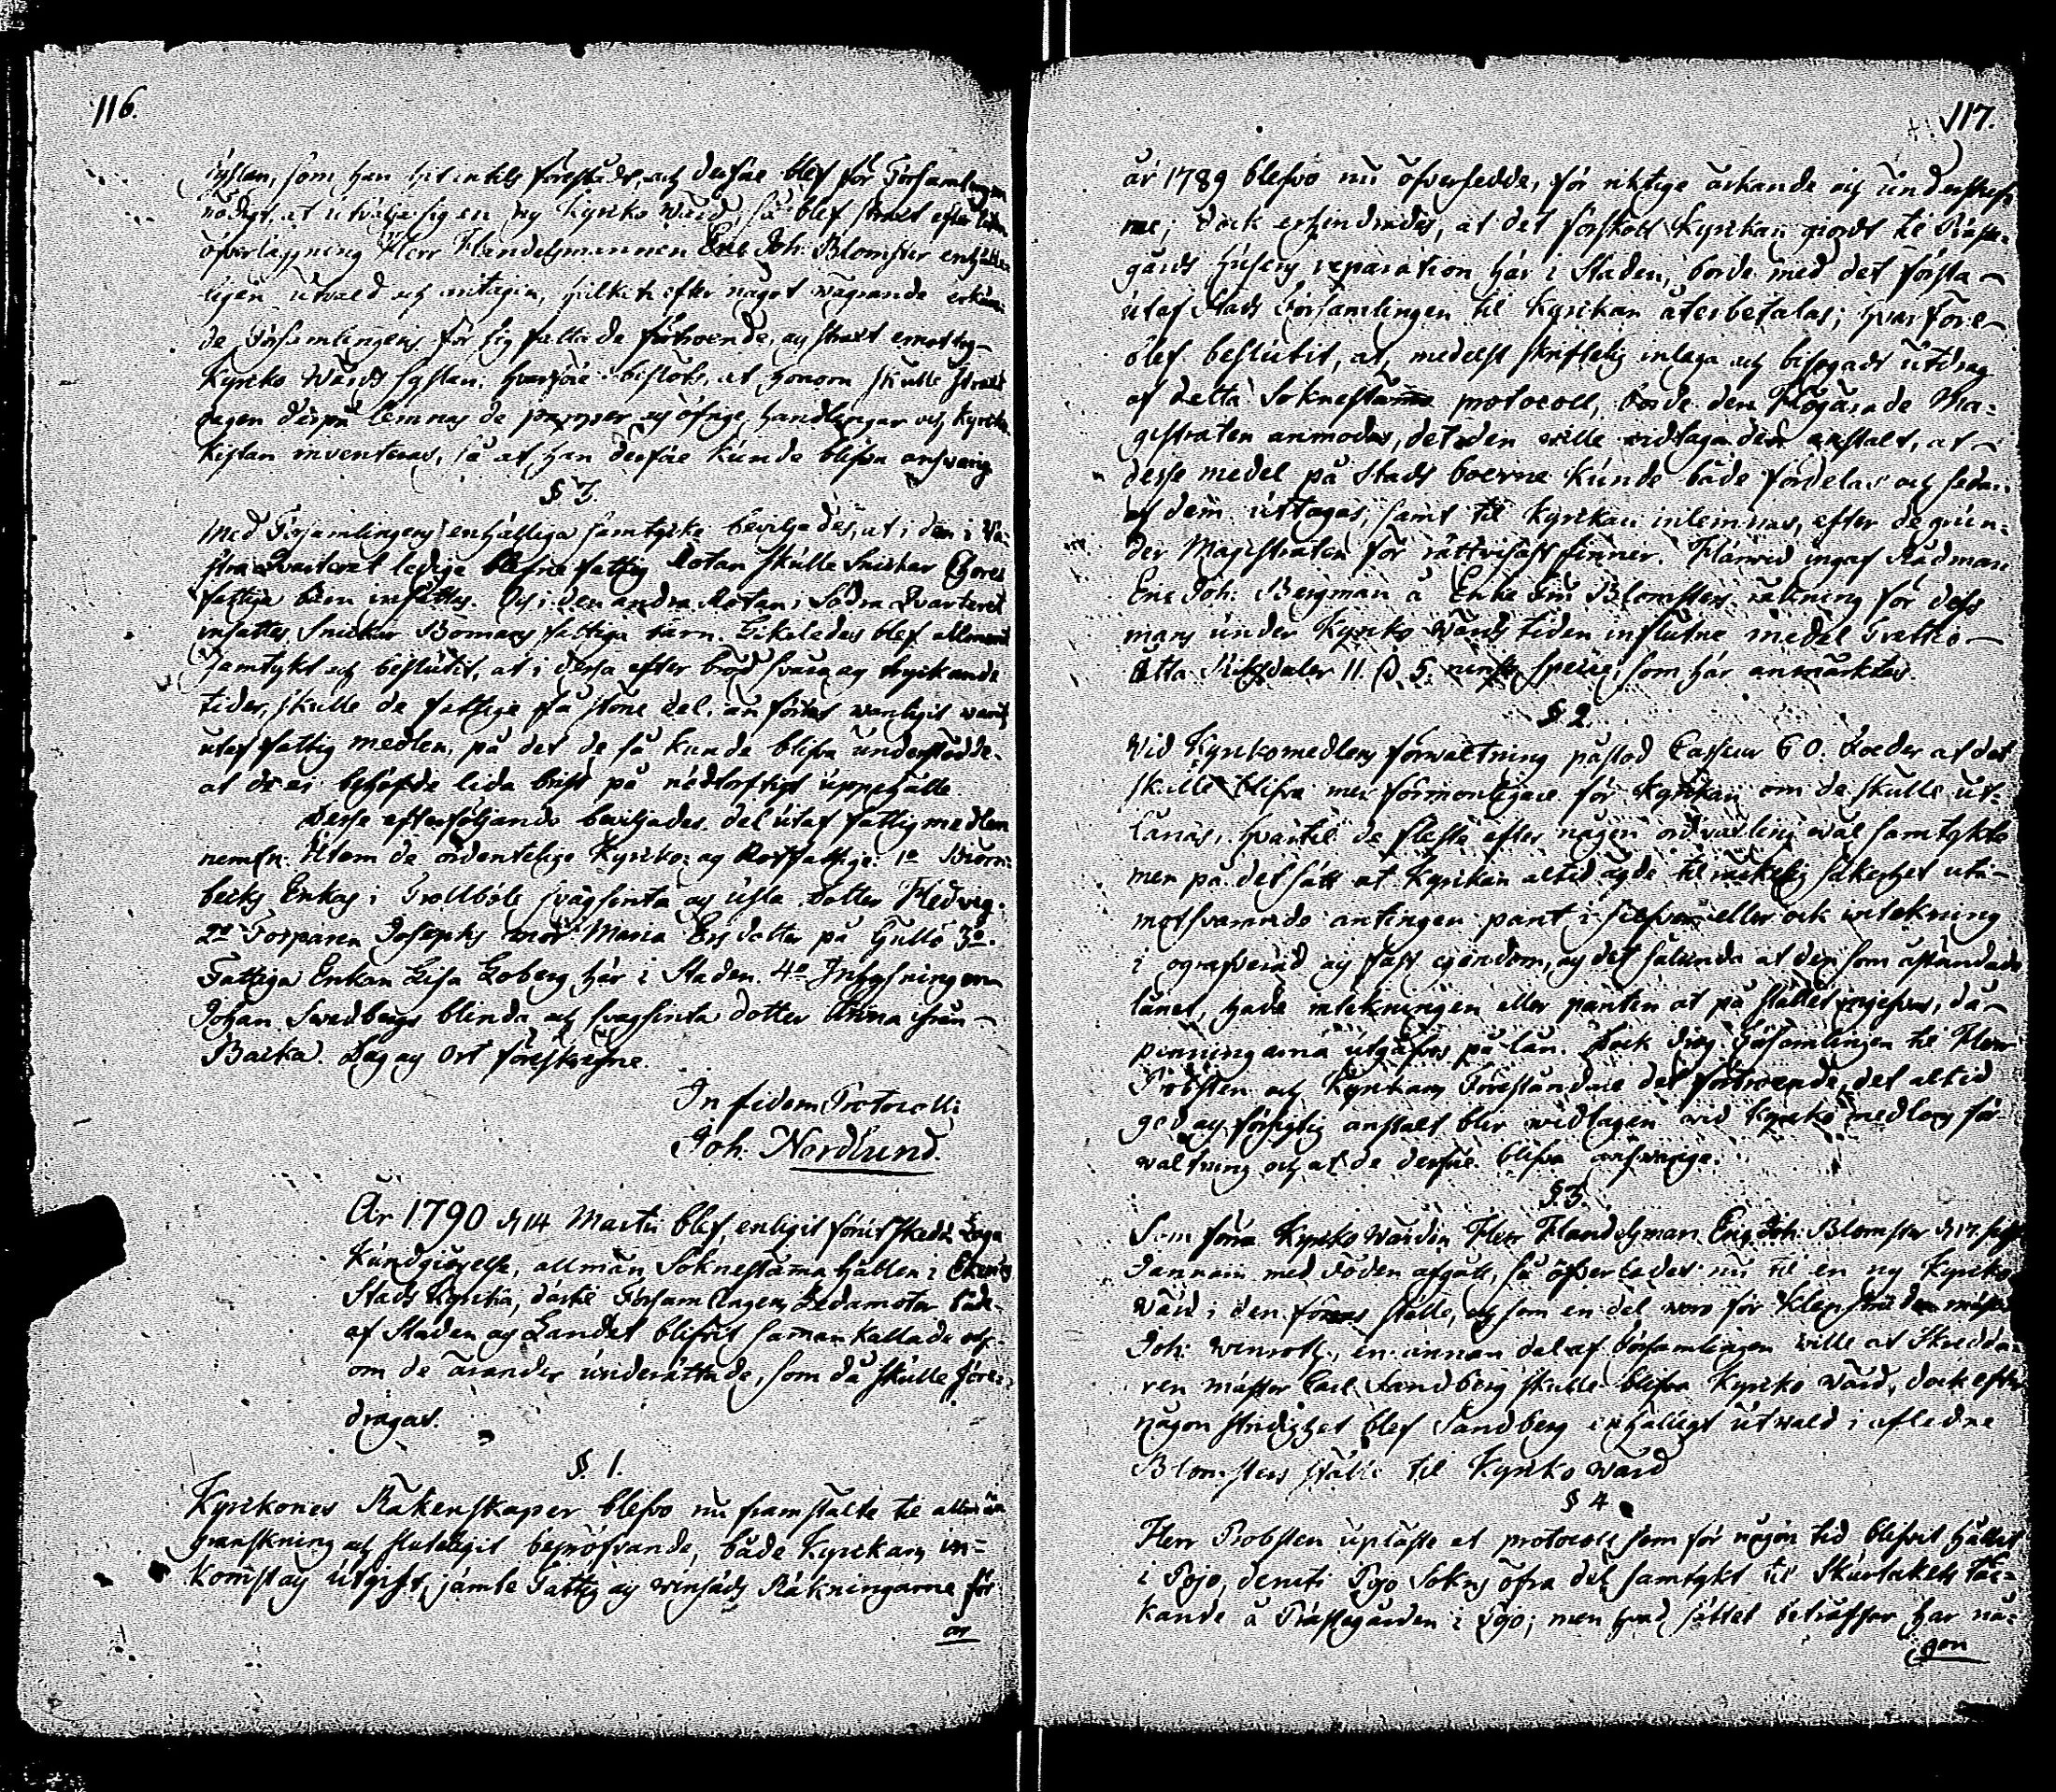 116.
syslan, som han hit intils förestådt, och derföre blef för Församlingen
nödigt, at utvälja sig en ny Kyrko Wärd, så blef strax efter liten
öfverläggning Herr Handelsmannen Eric Joh. Blomster enhälle-
ligen utvald och antagen, hvilken efter något wägrande erkän-
de Församlingens för sig fattade förtroende, og straxt emottog
Kyrko Wärds Syslan. Hvarföre beslöts, at honom skulle straxt
dagen derpå lemnas de papper og öfrige handlingar och Kyrko
Kistan inventeras, så at han derföre kunde blifva answarig
§ 3.
Med Församlingens enhälliga samtycke beviljades, at i den i Vä-
stra Quarteret ledige fattig Rotan skulle Snickar
fattiga barn insättas. Och i den andra Rotan i Södra Quarteret
insattes Snickar Bomans fattiga barn. Likaledes blef allment
samtykt och beslutit, at i dessa efter bröd svåra og tryckande
tider, skulle de fattige få större del, än förut wanligit warit
utaf fattig medlen, på det de så kunde blifva understödde
at de ei behöfde lida brist på nödtorftigt uppehälle.
Desse efterföljande beviljades del utaf fattigmedlen
nemln. Utom de ordentelige Kyrko- og Rotfattige. 1o Biörn-
becks Enkas i Trollböle svagsinta og usla Dotter Hedvig.
2o Torparen Josephs mor Maria Ersdotter på Gullö 3o.
Fattiga Enkan Lisa Loberg här i Staden. 4o Inhysningen
Johan Swedbergs blinda och svagsinta dotter Anna ifrån
Backa. Dag og Ort föreskrefne.
In fidem Protocolli
Joh. Nordlund.
År 1790 d 14 Martii blef, enligit förut skedd Laga
Kundgiörelse, allmän Soknestämma hållen i Ekenäs
Stads Kyrka, dertil Församlingens Ledamoter både
af Staden og Landet blifvit samankallade och
om de ärander underättade, som då skulle före-
dragas.
§. 1.
Kyrkones Räkenskaper blefvo nu framstälte til allmän
granskning och slutelligit bepröfvande, både Kyrkans in-
komst og utgift, jämte Fattig og winsäds Räkningarne för
år
117.
år 1789 blefvo nu öfversedde, för riktige ärkände och underskref-
ne; dock erhindrades, at det förskott Kyrkan giordt til Präste-
gårds husens reparation här i Staden, borde med det första
utaf Stads Församlingen til Kyrkan återbetalas; hvarföre
blef beslutit, at, medelst skriftelig inlaga och bifogadt utdrag
af detta Soknestämmo protocoll, borde den Högärade Ma-
gistraten anmodas, det den wille widtaga den anstalt, at
desse medel på Stads boerne kunde både fördelas och sedan
af dem uttagas, samt til Kyrkan inlemnas, efter de grun-
der Magistraten för rättvisast finner. Härvid ingaf Rådman
Eric Joh. Bergman å Enke Fru Blomsters räkning för dess
mans under Kyrko Wärds tiden influtne medel Trettio
åtta Riksdaler 11. ß. 5. rst. specie, som här anmärktes.
§ 2.
Wid Kyrkomedlens förwaltning påstod Casseur G O. Loeder at det
skulle blifva mer förmonligare för Kyrkan om de skulle ut-
lånas, hvartil de fleste efter någon ordvexling wäl samtykte
men på det sätt at Kyrkan altid ägde tilräckelig säkerhet utä-
motsvarande antingen pant i silfver eller ock intekning
i ograverad og fast egendom, og det sålunda at den som åstundade
lånet, hade intekningen eller panten at på stället ingifva, då
penningarna utgåfvos på lån. Dock drog Församlingen til Herr
Probsten och Kyrkans Föreståndare det förtroende, det altid
god og försigtig anstalt blir widtagen wid Kyrko medlens för-
waltning och at de derföre blifva answarige.
§ 3.
Som förra Kyrko Wärden Herr Handelsman Eric Joh. Blomster d 17 sistl.
Januarii med döden afgått, så öfverlades nu til en ny Kyrko
Wärd i den förras ställe, och som en del woro för
Joh: Winroth, en annan del af Församlingen wille at Skredda-
ren mäster Carl Sandberg skulle blifva Kyrko Wärd, dock efter
någon stridighet blef Sandberg enhälligt utwald i afledne
Blomsters ställe til Kyrko Ward
§ 4.
Herr Probsten upläste et protocoll som för någon tid blifvit hållit
i Pojo, deruti Pojo Sokns öfra del samtykt til Skurtakets täc-
kande å Prästegården i Pojo; men hvad sättet beträffar har nå-
gon